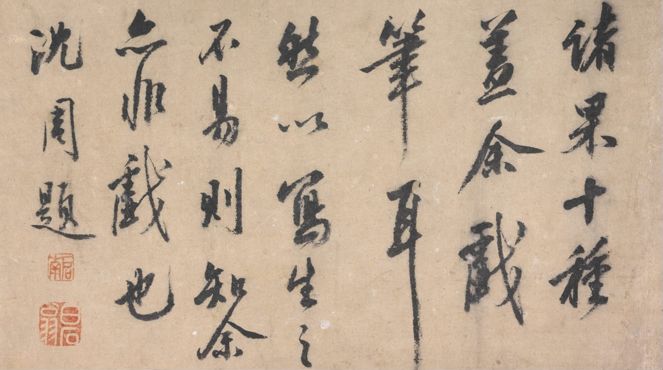 諸果十種
蓋余戲
筆耳
然以寫生之
不易則知余
亦非戲也
沈周題
啟南
白石翁